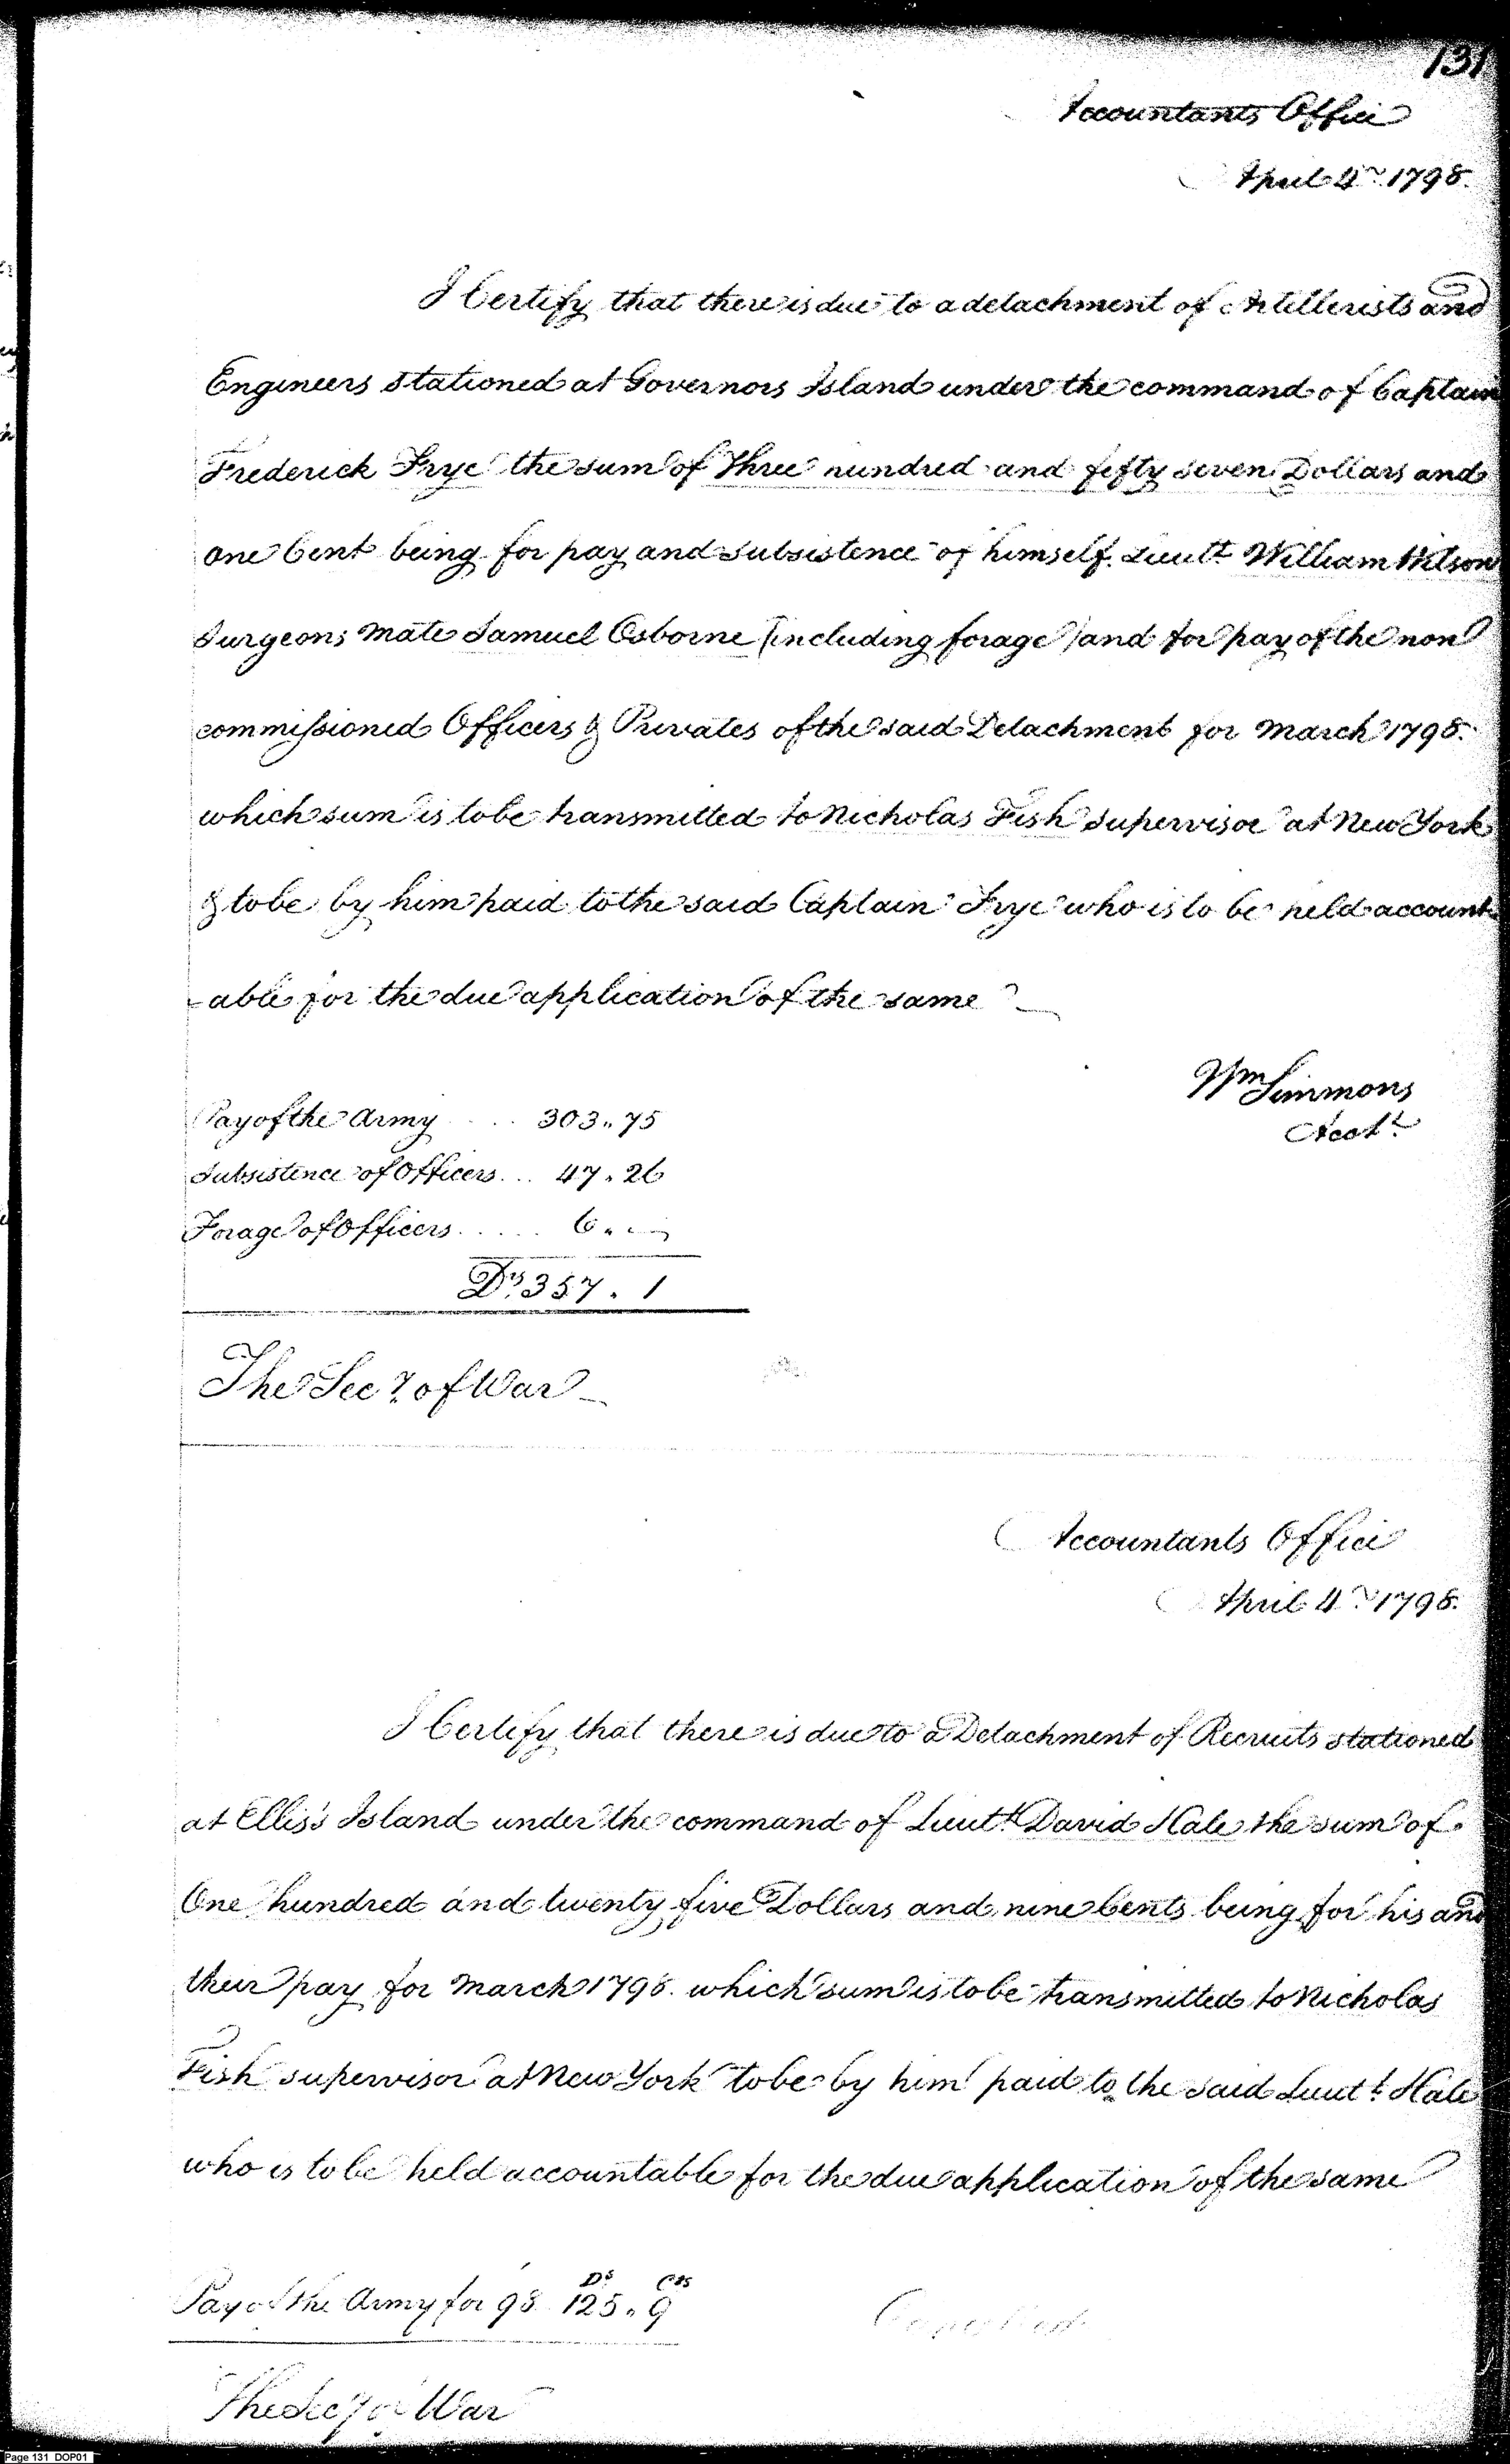 131
Accountants Office
April 4th 1798.
I Certify that there is due to a detachment of Artillerists and
Engineers stationed at Governors Island under the command of Captain
Frederick Frye the sum of Three hundred and fifty seven Dollars and
one Cent being for pay and subsistence of himself. Lieutt William Wilson
Surgeons Mate Samuel Osborne (including forage) and for pay of the non
commissioned Officers & Privates of the said Detachment for March 1798.
which sum is to be transmitted to Nicholas Fish Supervisor at New York
& to be by him paid to the said Captain Frye who is to be held account
-able for the due application of the same
Wm Simmons
Acct.
Pay of the Army .... 303.. 75
Subsistence of Officers ... 47. 26
Forage of Officers ..... 6..
Ds. 357. 1
The Secy. of War
Accountants Office
April 4th 1798.
I Certify that there is due to a Detachment of Recruits stationed
at Ellis's Island under the command of Lieutt. David Hale the sum of
One hundred and twenty five Dollars and nine Cents being for his and
their pay for March 1798. which sum is to be transmitted to Nicholas
Fish supervisor at New York to be by him paid to the said Lieutt. Hale
who is to be held accountable for the due application of the same
Ds Cts
Pay of the Army for 98 125.. 9
The Secy of War
Page 131 DOP01